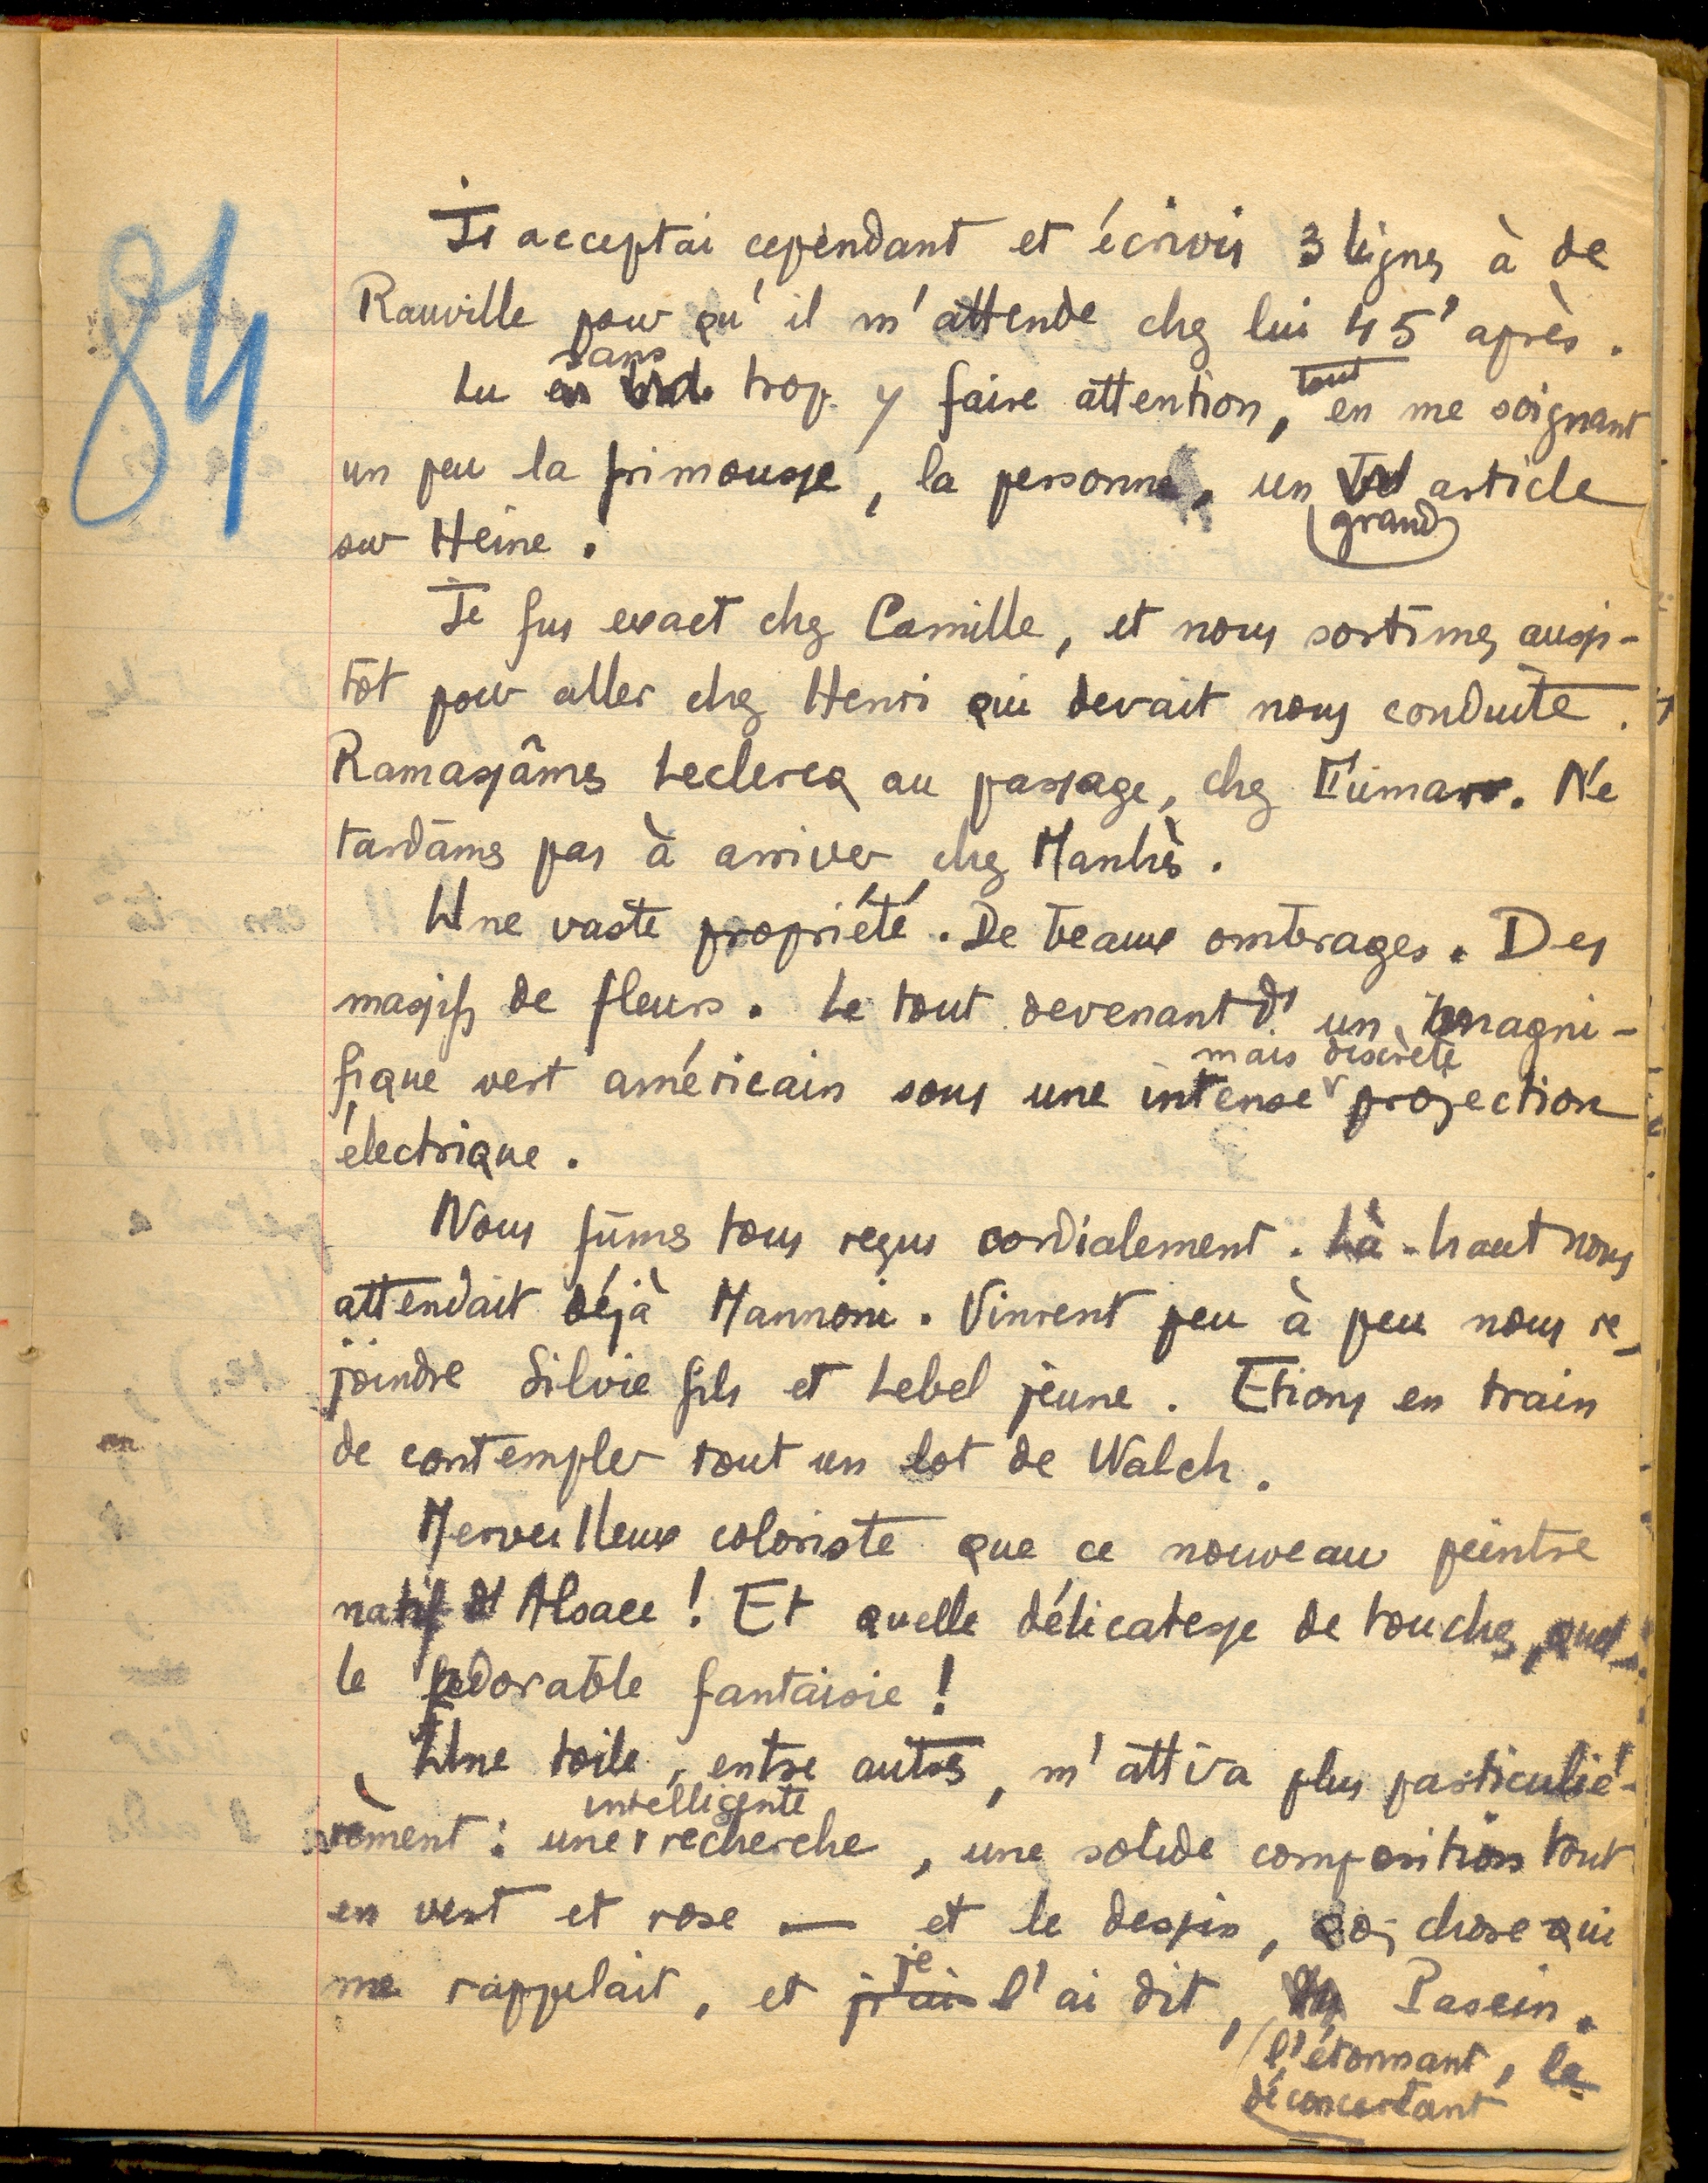 84
Je acceptai cependant et écrivis 3 lignes à de
Rauville pour qu'il m'attende chez lui 45' après.
Lu sans trop y faire attention, tout en me soignant
un peu la frimousse, la personne, un grand article
sur Heine.
Je fus exact chez Camille, et nous sortîmes aussi-
tôt pour aller chez Henri qui devait nous conduite.
Ramassâmes Leclercq au passage, chez . Ne
tardâmes pas à arriver chez Manhès.
Une vaste propriété. De beaux ombrages. Des
massifs de fleurs. Le tout devenant d'un magni-
fique vert américain sous une intense mais discrète projection
électrique.
Nous fûmes tous reçus cordialement. Là-haut nous
attendait déjà Mannoni. Vinrent peu à peu nous re-
joindre Silvie fils et Lebel jeune. Etions en train
de contempler tout un lot de Walch.
Merveilleux coloriste que ce nouveau peintre
natif d'Alsace! Et quelle délicatesse de touches, quel-
le adorable fantaisie!
Une toile, entre autres, m'attira plus particuliè-
rement: une intelligente recherche, une solide composition tout
en vert et rose — et le dessin, qq chose qui
me rappelait, et je l'ai dit, Pascin.
l'étonnant, le
déconcertant